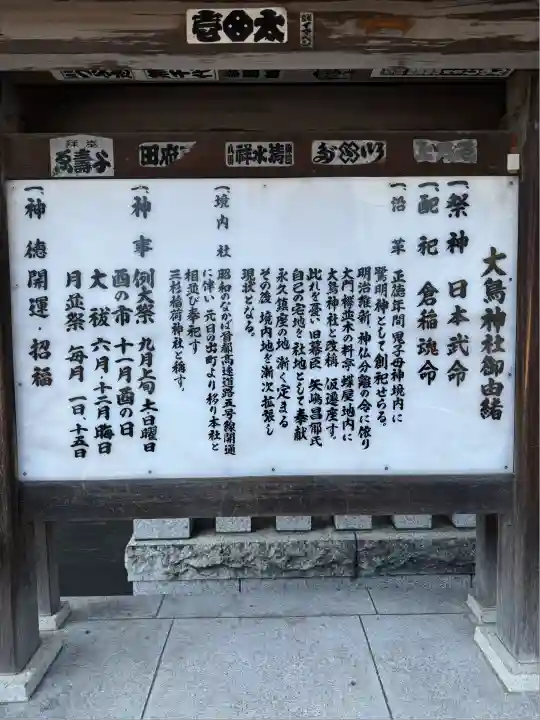 太田壱
満壽子
田府
清水祥
大鳥神社御由緒
一祭神 日本武命
一配祀 倉稲魂命
一沿革 正徳年間 鬼子母神境内に
鷲明神として創祀せらる。
明治維新、神仏分離の令に依り
大門欅並木の料亭 蝶屋地内に
大鳥神社と改稱 仮遷座す。
此れを憂い旧幕臣 矢嶋昌郁氏
自己の宅地を社地として奉献
永久鎮座の地 漸く定まる
その後 境内地を漸次拡張し
現状となる。
一境内社 昭和のなかば首都高速道路五号線開通
に伴い 元日の出町より移り本社と
相並び奉祀す
三杉稲荷神社と稱す。
一神事 例大祭 九月上旬 土日曜日
酉の市 十一月酉の日
大祓 六月・十二月晦日
月並祭 毎月 一日、十五日
一神徳 開運・招福